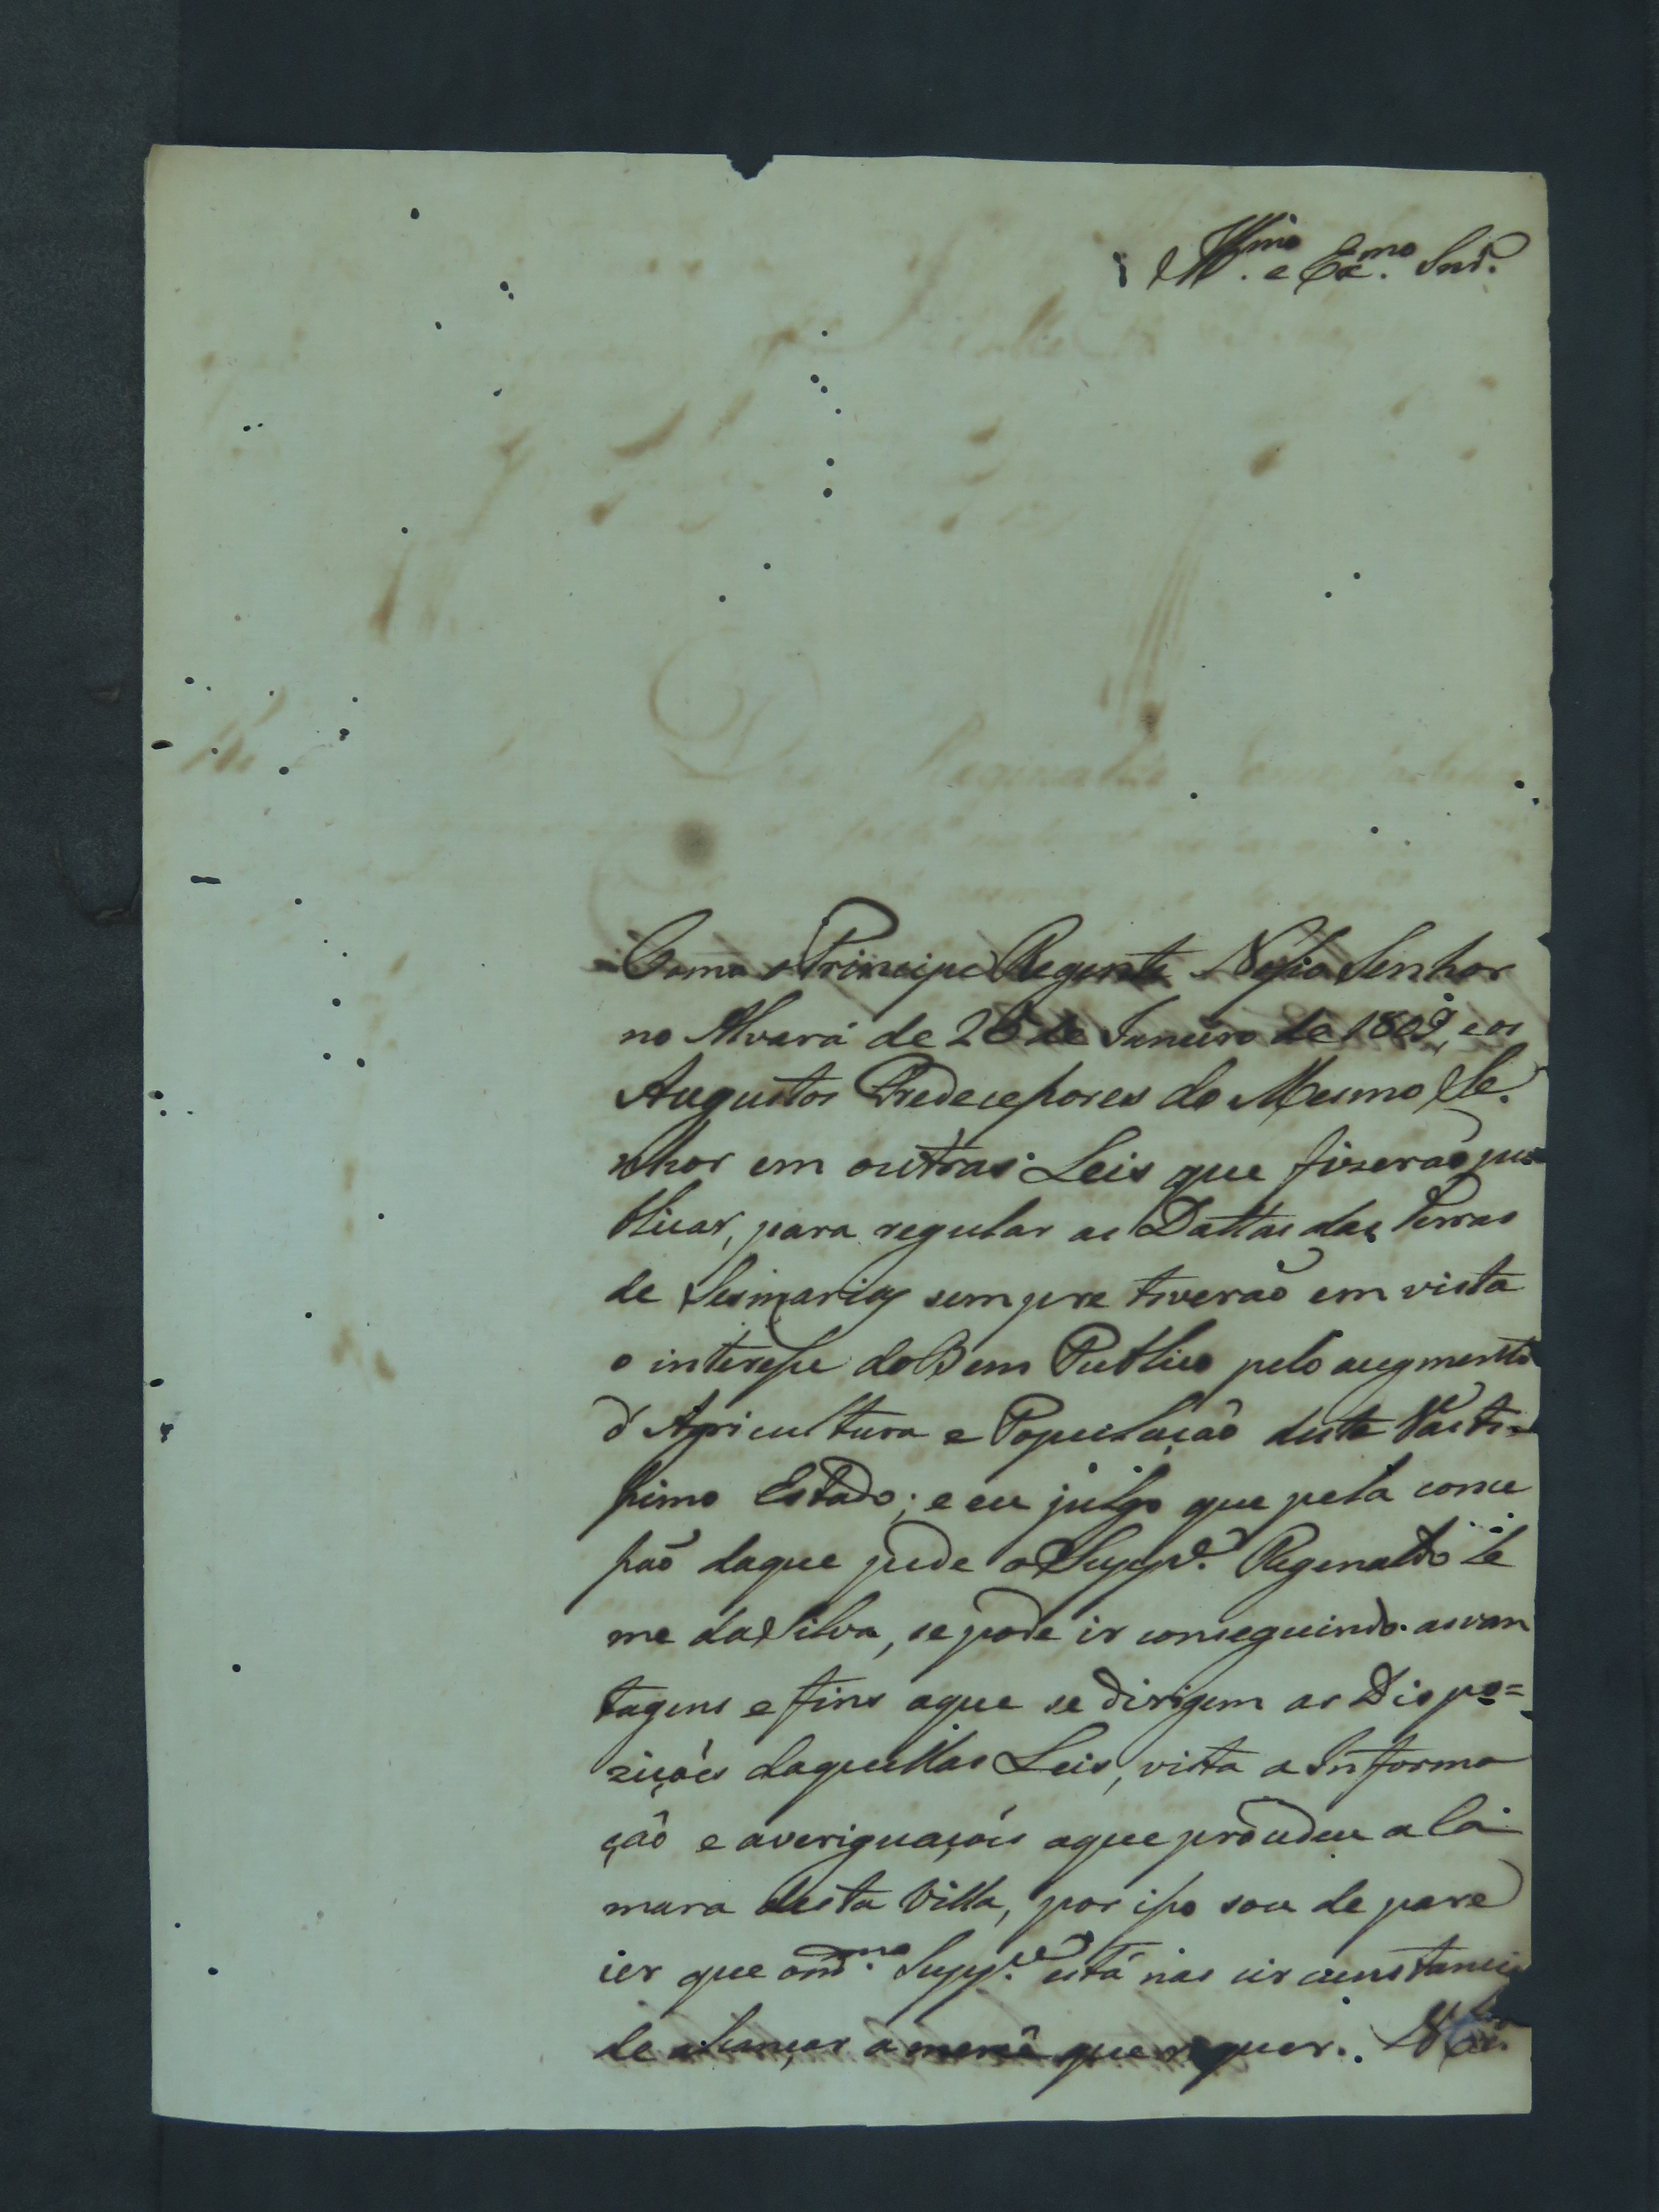 Illmo. e Exmo. Snr.
Como o Principe Regente Nosso Senhor
no Alvará de 25 de Janeiro de 1809, e os
Augustos Predecessores do Mesmo Se-
nhor em outras Leis que fizerão pu-
blicar, para regular as Dattas das Terras
de Sesmarias sempre tiverão em vista
o interesse do Bem Publico pelo augmento
d'Agricultura e População deste Vasti-
ssimo Estado; e eu julgo que pela conce
ssão daque pede o Suppe. Reginaldo Le
me da Silva, se pode ir conseguindo as van
tagens e fins aque se dirigem as Dispo=
ziçoẽs daquellas Leis, vista a Informa
ção e averiguaçoẽs aque procedeu a Ca
mara desta Villa, por isso sou de pare
cer que o md.mo Suppe. está nas circumstancias
de alcançar a mercê que requer.